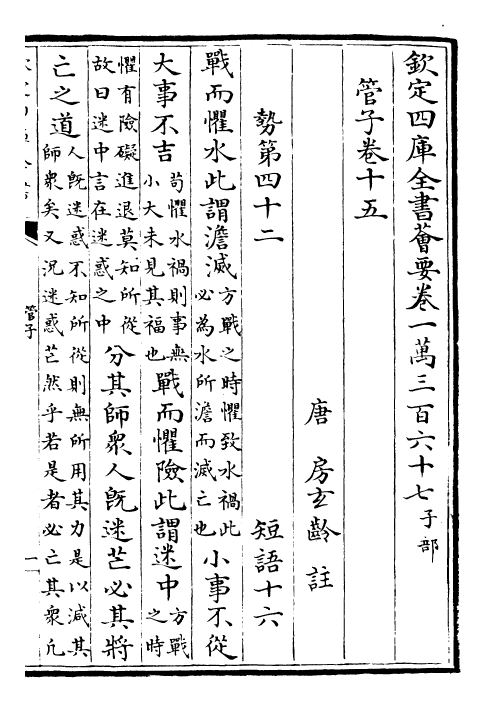 欽定四庫全書薈要卷一萬三百六十七子部
管子卷十五
唐 房玄齡 註
勢第四十二 短語十六
戰而懼水此謂澹滅方戰之時懼致水禍此必為水所澹而滅亡也小事不從
大事不吉苟懼水禍則事無小大未見其福也戰而懼險此謂迷中方戰之時
懼有險礙進退莫知所從故曰迷中言在迷惑之中分其師衆人既迷芒必其將
亡之道人既迷惑不知所從則無所用其力是以減其師衆矣又況迷惑芒然乎若是者必亡其衆凢
管子
一